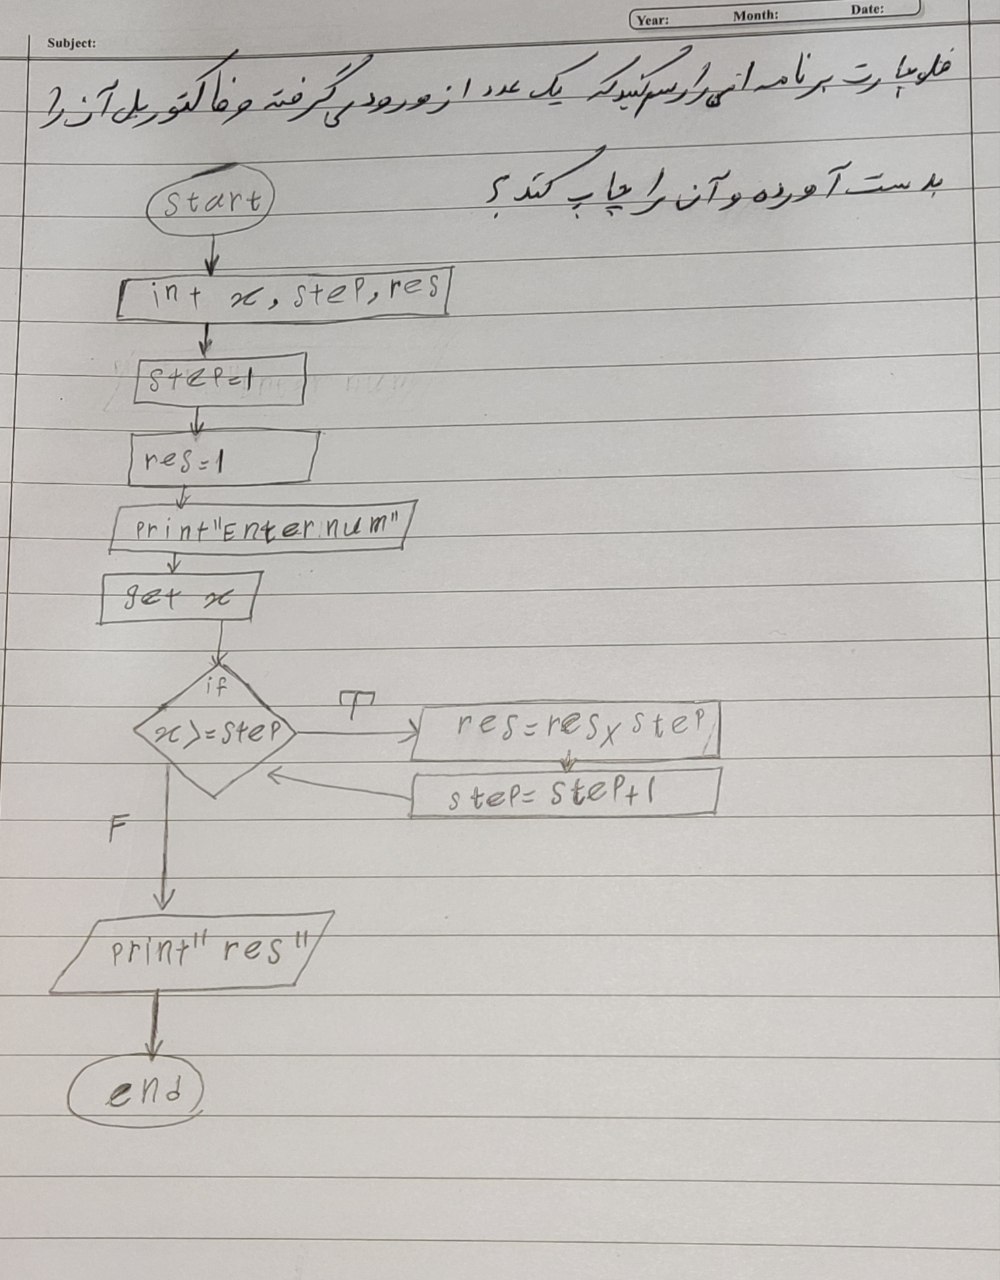 Year: Month: Date:
Subject:
فلوچارت برنامه ائی را رسم کنید که یک عدد از ورودی گرفته و فاکتوریل آن را
بدست آورده و آن را چاپ کند؟
start
int x, step, res
step=1
res=1
print"Enter num"
get x
if
x>=step
T
res=res×step
step=step+1
F
print"res"
end